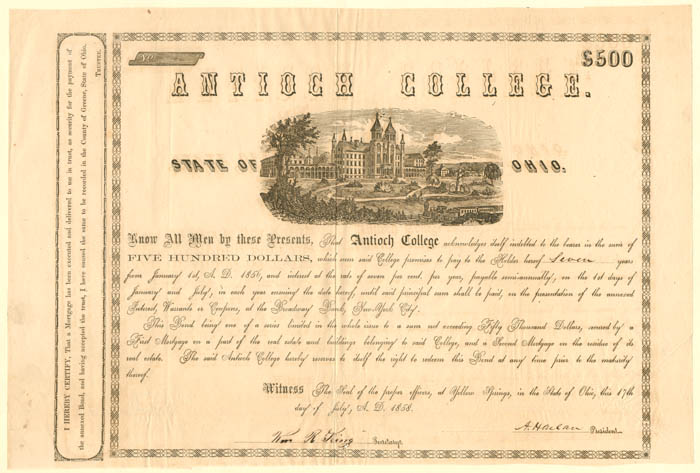 I HEREBY CERTIFY, That a Mortgage has been executed and delivered to me in trust, as security for the payment of
the annexed Bond, and having accepted the trust, I have caused the same to be recorded in the County of Greene, State of Ohio.
TRUSTEE.
No.
$500
ANTIOCH COLLEGE.
STATE OF OHIO.
Know All Men by these Presents, That Antioch College acknowledges itself indebted to the bearer in the sum of
FIVE HUNDRED DOLLARS, which sum said College promises to pay to the Holder hereof Seven years
from January 1st, A. D. 1856, and interest at the rate of seven per cent. per year, payable semi-annually, on the 1st days of
January and July, in each year ensuing the date hereof, until said principal sum shall be paid, on the presentation of the annexed
Interest Warrants or Coupons, at the Broadway Bank, New-York City.
This Bond being one of a series limited in the whole issue to a sum not exceeding Fifty Thousand Dollars, secured by a
First Mortgage on a part of the real estate and buildings belonging to said College, and a Second Mortgage on the residue of its
real estate. The said Antioch College hereby reserves to itself the right to redeem this Bond at any time prior to the maturity
thereof.
Witness The Seal of the proper officers, at Yellow Springs, in the State of Ohio, this 17th
day of July, A. D. 1858.
A. Harlan President.
Wm R King Secretary.